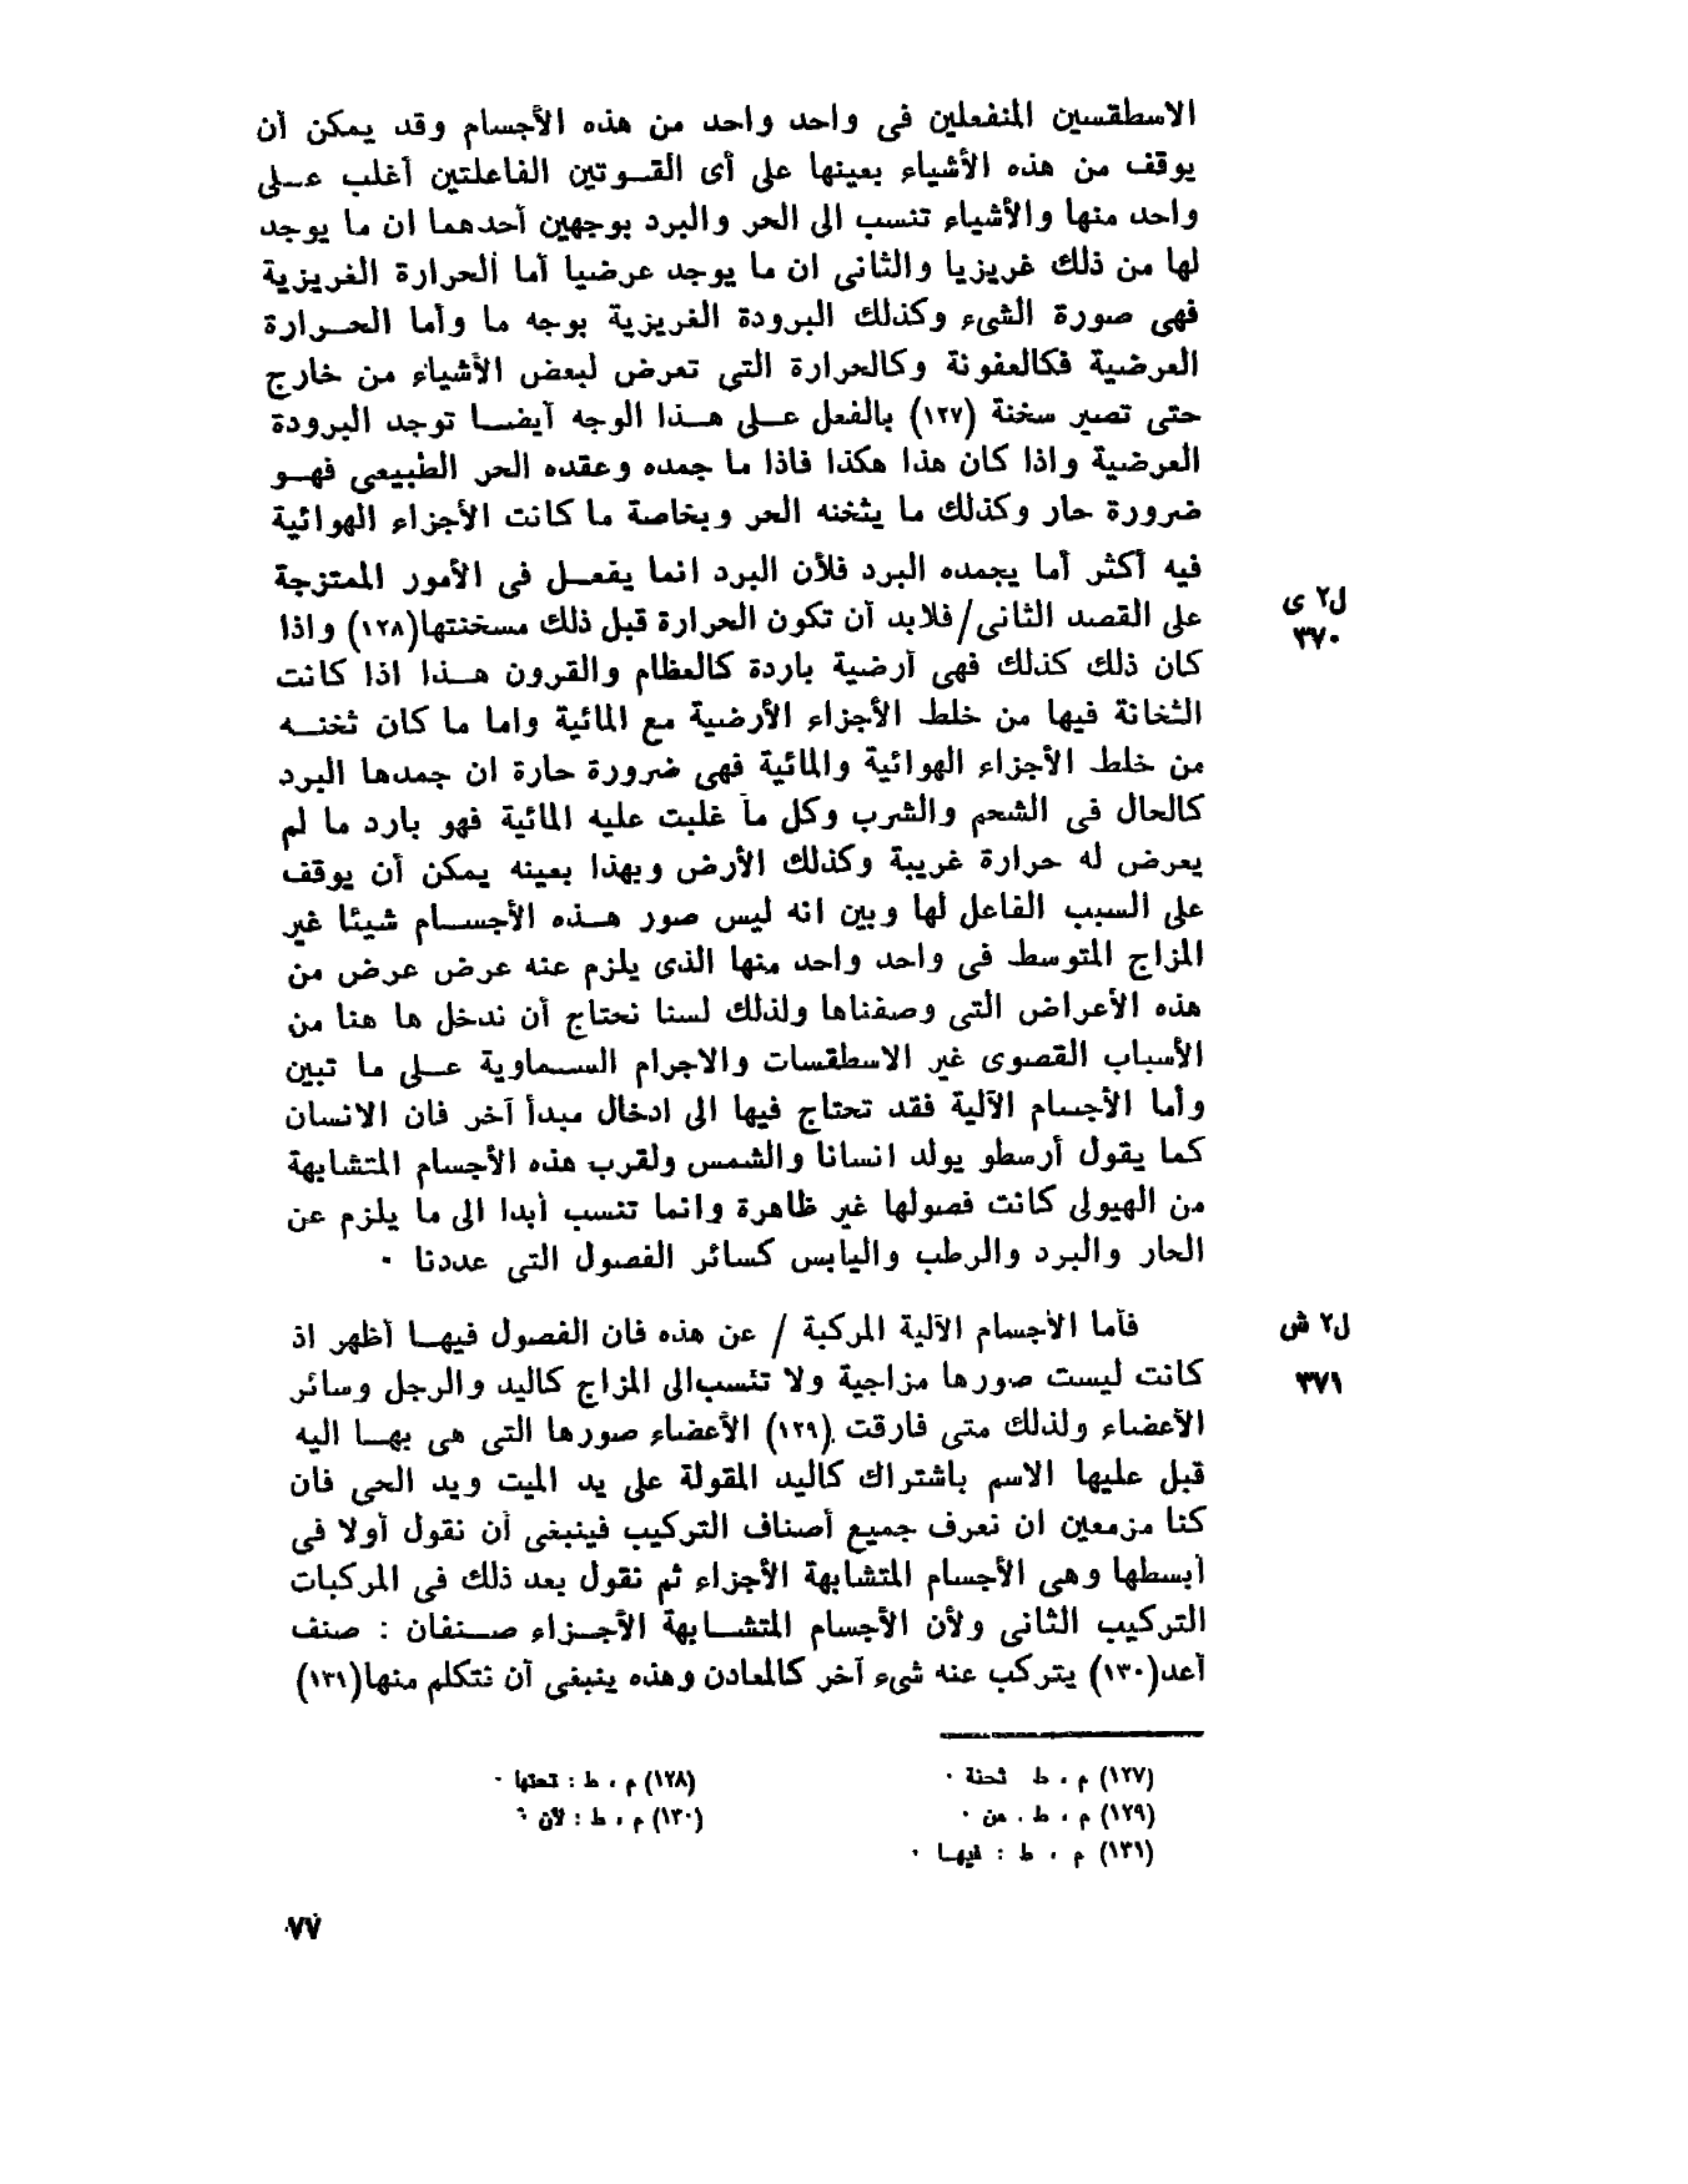 الاسطقسين المنفعلين فى واحد واحد من هذه الأجسام وقد يمكن أن
يوقف من هذه الأشياء بعينها على أى القوتين الفاعلتين أغلب على
واحد منها والأشياء تنسب الى الحر والبرد بوجهين أحدهما ان ما يوجد
لها من ذلك غريزيا والثانى ان ما يوجد عرضيا أما الحرارة الغريزية
فهى صورة الشىء وكذلك البرودة الغريزية بوجه ما وأما الحرارة
العرضية فكالعفونة وكالحرارة التى تعرض لبعض الأشياء من خارج
حتى تصير سخنة (١٢٧) بالفعل على هذا الوجه أيضا توجد البرودة
العرضية واذا كان هذا هكذا فاذا ما جمده وعقده الحر الطبيعى فهو
ضرورة حار وكذلك ما يثخنه الحر وبخاصة ما كانت الأجزاء الهوائية
فيه أكثر أما يجمده البرد فلأن البرد انما يفعل فى الأمور الممتزجة
على القصد الثانى/فلابد أن تكون الحرارة قبل ذلك مسخنتها(١٢٨) واذا
ل٢ ى
٣٧٠
كان ذلك كذلك فهى أرضية باردة كالعظام والقرون هذا اذا كانت
الثخانة فيها من خلط الأجزاء الأرضية مع المائية واما ما كان ثخنه
من خلط الأجزاء الهوائية والمائية فهى ضرورة حارة ان جمدها البرد
كالحال فى الشحم والشرب وكل ما غلبت عليه المائية فهو بارد ما لم
يعرض له حرارة غريبة وكذلك الأرض وبهذا بعينه يمكن أن يوقف
على السبب الفاعل لها وبين انه ليس صور هذه الأجسام شيئا غير
المزاج المتوسط فى واحد واحد منها الذى يلزم عنه عرض عرض من
هذه الأعراض التى وصفناها ولذلك لسنا نحتاج أن ندخل ها هنا من
الأسباب القصوى غير الاسطقسات والاجرام السماوية على ما تبين
وأما الأجسام الآلية فقد تحتاج فيها الى ادخال مبدأ آخر فان الانسان
كما يقول أرسطو يولد انسانا والشمس ولقرب هذه الأجسام المتشابهة
من الهيولى كانت فصولها غير ظاهرة وانما تنسب أبدا الى ما يلزم عن
الحار والبرد والرطب واليابس كسائر الفصول التى عددنا ٠
فأما الأجسام الآلية المركبة / عن هذه فان الفصول فيها أظهر اذ
ل٢ ش
كانت ليست صورها مزاجية ولا تنسب الى المزاج كاليد والرجل وسائر
٣٧١
الأعضاء ولذلك متى فارقت (١٢٩) الأعضاء صورها التى هى بها اليه
قبل عليها الاسم باشتراك كاليد المقولة على يد الميت ويد الحى فان
كنا مزمعين ان نعرف جميع أصناف التركيب فينبغى أن نقول أولا فى
أبسطها وهى الأجسام المتشابهة الأجزاء ثم نقول بعد ذلك فى المركبات
التركيب الثانى ولأن الأجسام المتشابهة الأجزاء صنفان : صنف
أعد(١٣٠) يتركب عنه شىء آخر كالمعادن وهذه ينبغى أن نتكلم منها(١٣١)
(١٢٧) م ، ط ثحنة ٠
(١٢٨) م ، ط : تحتها ٠
(١٢٩) م ، ط . من ٠
(١٣٠) م ، ط : لأن ٠
(١٣١) م ، ط : فيها ٠
٧٧